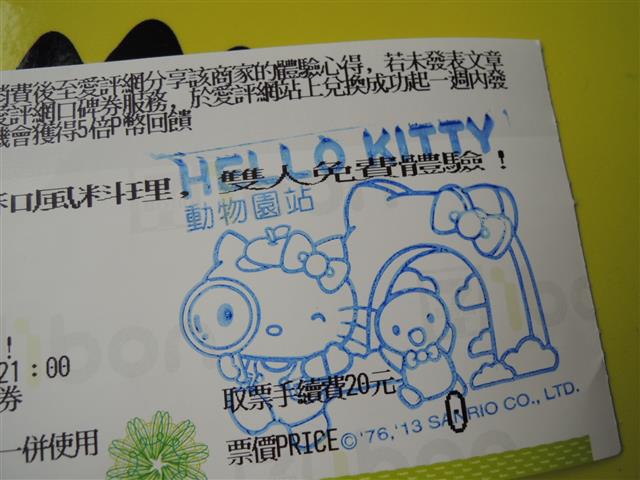 消費後至愛評網分享該商家的體驗心得, 若未發表文章
愛評網口碑券服務, 於愛評網站上兌換成功起一週內發
機會獲得5倍P幣回饋
HELLO KITTY
和風料理, 雙人免費體驗!
動物園站
!
21:00
券
取票手續費20元
一併使用
票價PRICE 0
©'76,'13 SANRIO CO., LTD.
ibon